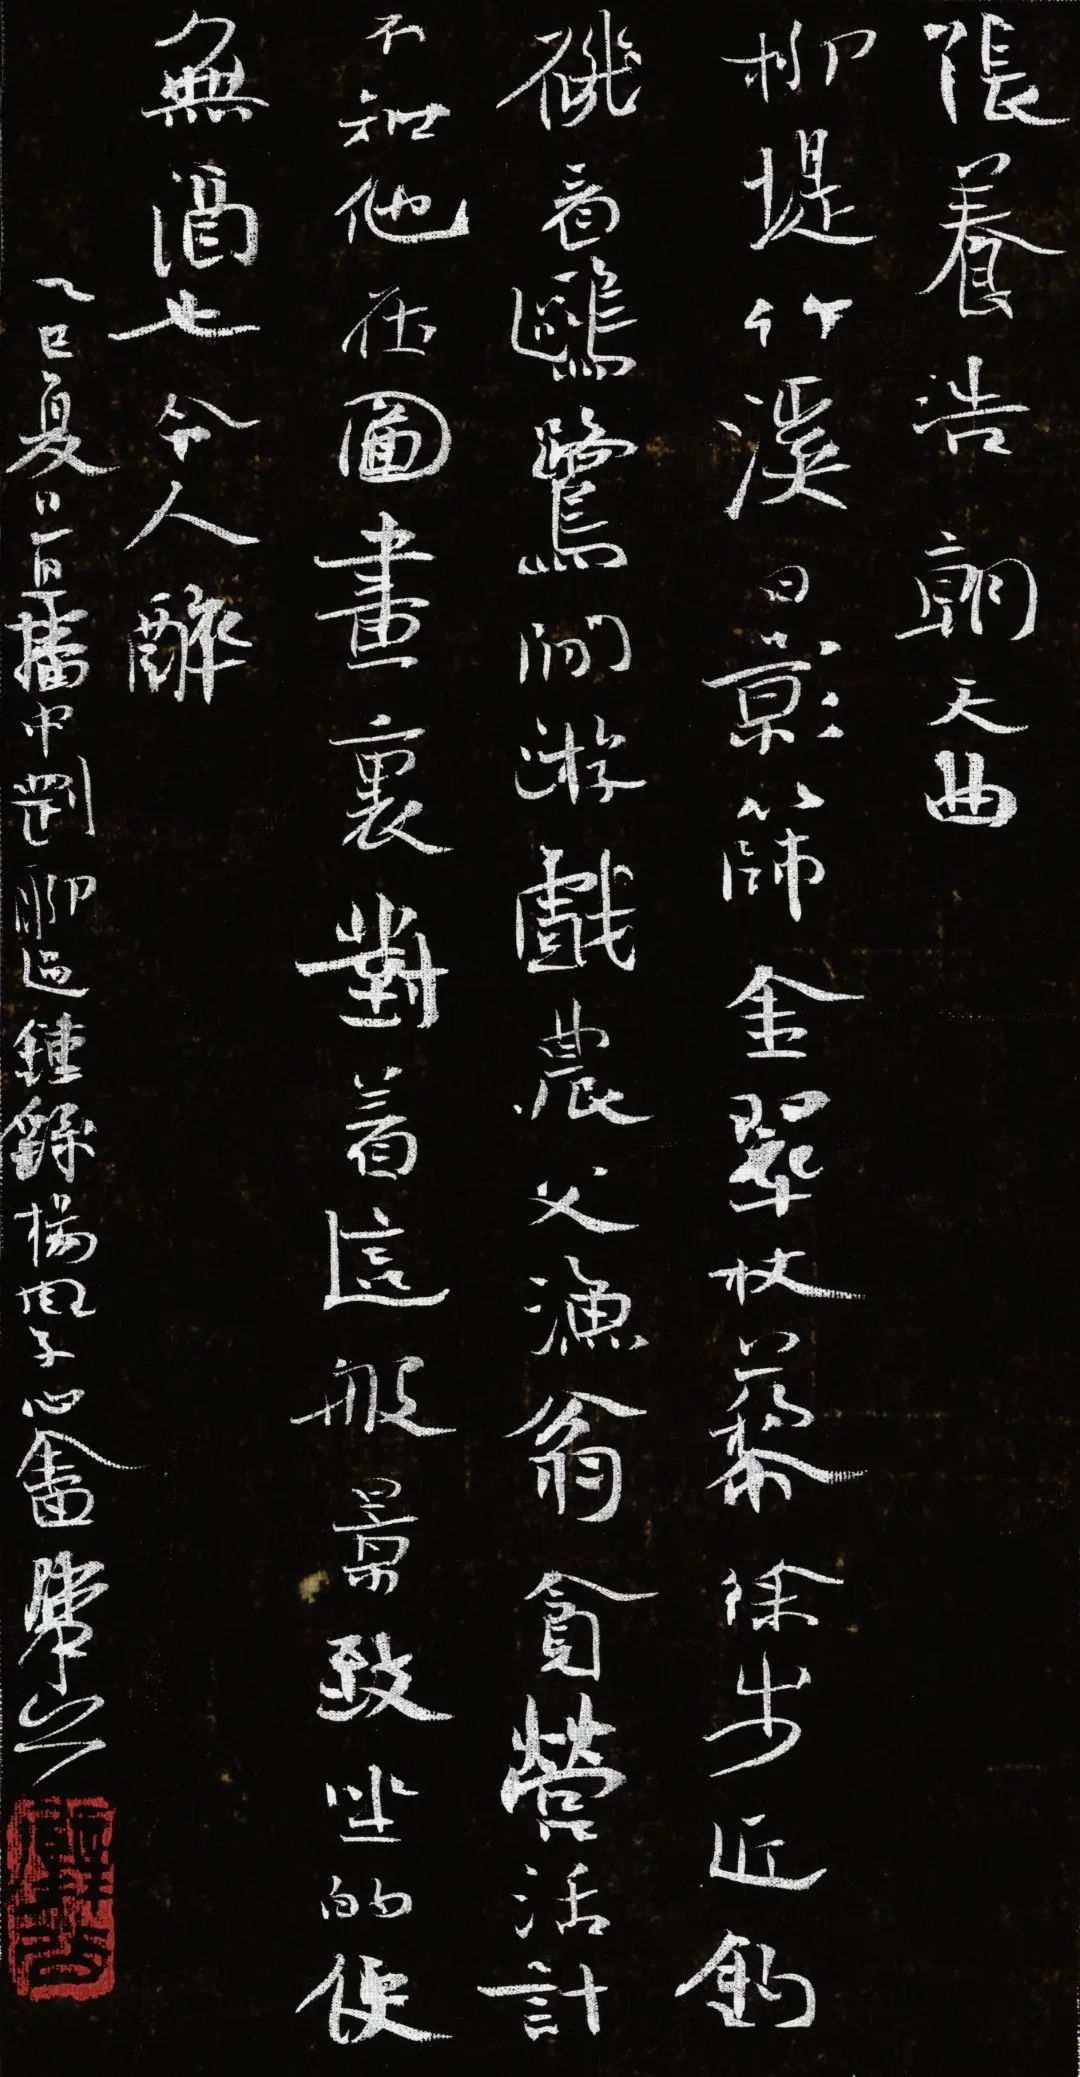 張養浩朝天曲
柳堤竹溪日影篩金翠杖藜徐步近釣
磯看鷗鷺閒遊戲農父漁翁貪營活計
不知他在圖畫裏對着這般景致坐的便
無酒也令人醉
乙巳夏日直播中劉聊過鍾錄楊四子心畬筆